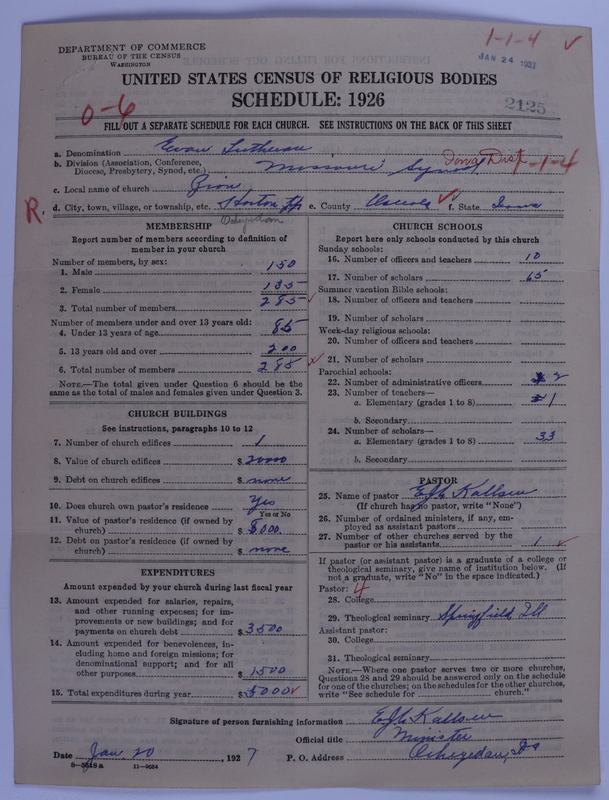 DEPARTMENT OF COMMERCE
BUREAU OF THE CENSUS
WASHINGTON
1-1-4
JAN 24 1927
UNITED STATES CENSUS OF RELIGIOUS BODIES
SCHEDULE: 1926
0-6
2125
FILL OUT A SEPARATE SCHEDULE FOR EACH CHURCH. SEE INSTRUCTIONS ON THE BACK OF THIS SHEET
a. Denomination Evan Lutheran
b. Division (Association, Conference, Diocese, Presbytery, Synod, etc.) Missouri Synod Iowa Dist 1-1-4
c. Local name of church Zion
R.
d. City, town, village, or township, etc. Horton Tp e. County Osceola f. State Iowa
Ocheyedan
MEMBERSHIP
Report number of members according to definition of
member in your church
Number of members, by sex:
1. Male 150
2. Female 135
3. Total number of members 285
Number of members under and over 13 years old:
4. Under 13 years of age 85
5. 13 years old and over 200
6. Total number of members 285
NOTE.—The total given under Question 6 should be
same as the total of males and females given under Question 3.
CHURCH BUILDINGS
See instructions, paragraphs 10 to 12
7. Number of church edifices 1
8. Value of church edifices $ 20000
9. Debt on church edifices $ none
10. Does church own pastor's residence Yes
Yes or No
11. Value of pastor's residence (if owned by
church) $ 8000.
12. Debt on pastor's residence (if owned by
church) $ none
EXPENDITURES
Amount expended by your church during last fiscal year
13. Amount expended for salaries, repairs,
and other running expenses; for im-
provements or new buildings; and for
payments on church debt $ 3500
14. Amount expended for benevolences, in-
cluding home and foreign missions; for
denominational support; and for all
other purposes $ 1500
15. Total expenditures during year $ 5000
CHURCH SCHOOLS
Report here only schools conducted by this church
Sunday schools:
16. Number of officers and teachers 10
17. Number of scholars 65
Summer vacation Bible schools:
18. Number of officers and teachers
19. Number of scholars
Week-day religious schools:
20. Number of officers and teachers
21. Number of scholars
Parochial schools:
22. Number of administrative officers 2
23. Number of teachers—
a. Elementary (grades 1 to 8) 1
b. Secondary
24. Number of scholars—
a. Elementary (grades 1 to 8) 33
b. Secondary
PASTOR
25. Name of pastor E.J.G. Kallsen
(If church has no pastor, write "None")
26. Number of ordained ministers, if any, em-
ployed as assistant pastors
27. Number of other churches served by the
pastor or his assistants 1
If pastor (or assistant pastor) is a graduate of a college or
theological seminary, give name of institution below. (If
not a graduate, write "No" in the space indicated.)
Pastor: 4
28. College
29. Theological seminary Springfield Ill
Assistant pastor:
30. College
31. Theological seminary
NOTE.—Where one pastor serves two or more churches,
Questions 28 and 29 should be answered only on the schedule
for one of the churches; on the schedules for the other churches,
write "See schedule for church."
Signature of person furnishing information E.J.G. Kallsen
Official title Minister
Date Jan. 20, 1927 P. O. Address Ocheyedan, Ia
11—9684